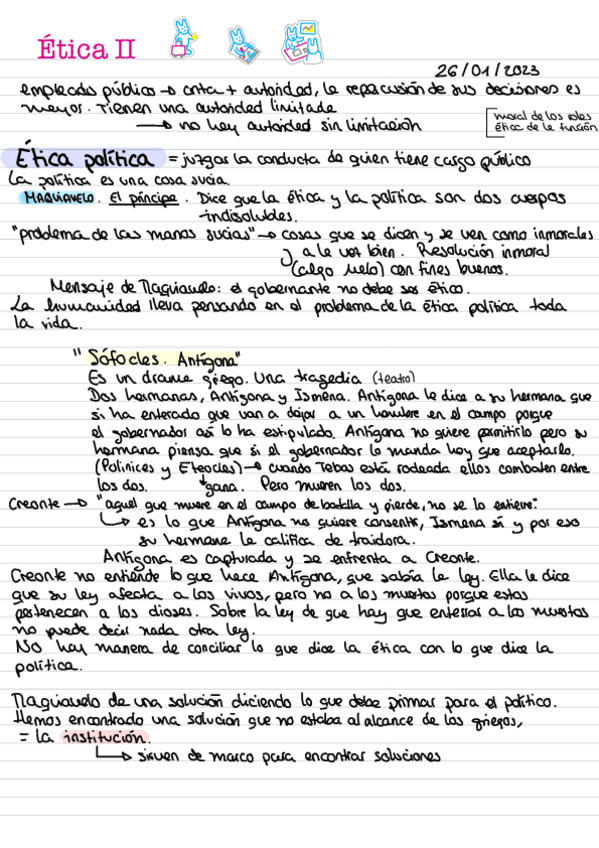 Ética II
26/01/2023
empleado público → cnta + autoridad, la repercusión de sus decisiones es
mayor. Tienen una autoridad limitada
→ no hay autoridad sin limitación
moral de los roles
ética de la función
Ética política = juzgar la conducta de quien tiene cargo público
La política es una cosa sucia.
MAQUIAVELO. El príncipe. Dice que la ética y la política son dos cuerpos
-indisolubles.
"problema de las manos sucias" → cosas que se dicen y se ven como inmorales
a le vet bien. Resolución inmoral
(algo malo) con fines buenos.
Mensaje de Maquiavelo: el gobernante no debe ser ético.
La humanidad lleva pensando en el problema de la ética política toda
la vida.
"Sófocles. Antígona"
Es un drama griego. Una tragedia (teatro)
Dos hermanas, Antígona y Ismena. Antígona le dice a su hermana que
si ha enterado que van a dejar a un hombre en el campo porque
el gobernador así lo ha estipulado. Antígona no quiere permitirlo pero su
hermana piensa que si el gobernador lo manda hay que aceptarlo.
(Polinices y Eteocles) → cuando Tebas está rodeada ellos combaten entre
los dos. gana. Pero mueren los dos.
Creonte → "aquel que muere en el campo de batalla y pierde, no se lo entierre".
→ es lo que Antígona no quiere consentir, Ismena sí y por eso
su hermana le califica de traidora.
Antígona es capturada y se enfrenta a Creonte.
Creonte no entiende lo que hace Antígona, que sabía la ley. Ella le dice
que su ley afecta a los vivos, pero no a los muertos porque estos
pertenecen a los dioses. Sobre la ley de que hay que enterrar a los muertos
no puede decir nada otra ley.
No hay manera de conciliar lo que dice la ética con lo que dice la
política.
Maquiavelo da una solución diciendo lo que debe primar para el político.
Hemos encontrado una solución que no estaba al alcance de los griegos,
= la institución.
→ sirven de marco para encontrar soluciones